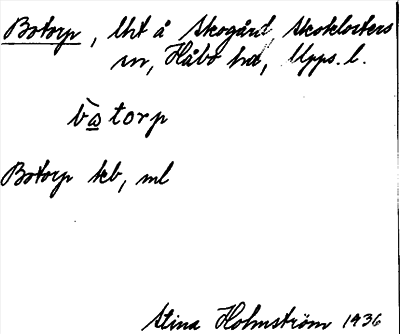 Botorp, lht å Skogård, Skoklosters
sn, Håbo hd, Upps. l.
bòtorp
Botorp kb, ml
Stina Holmström 1936